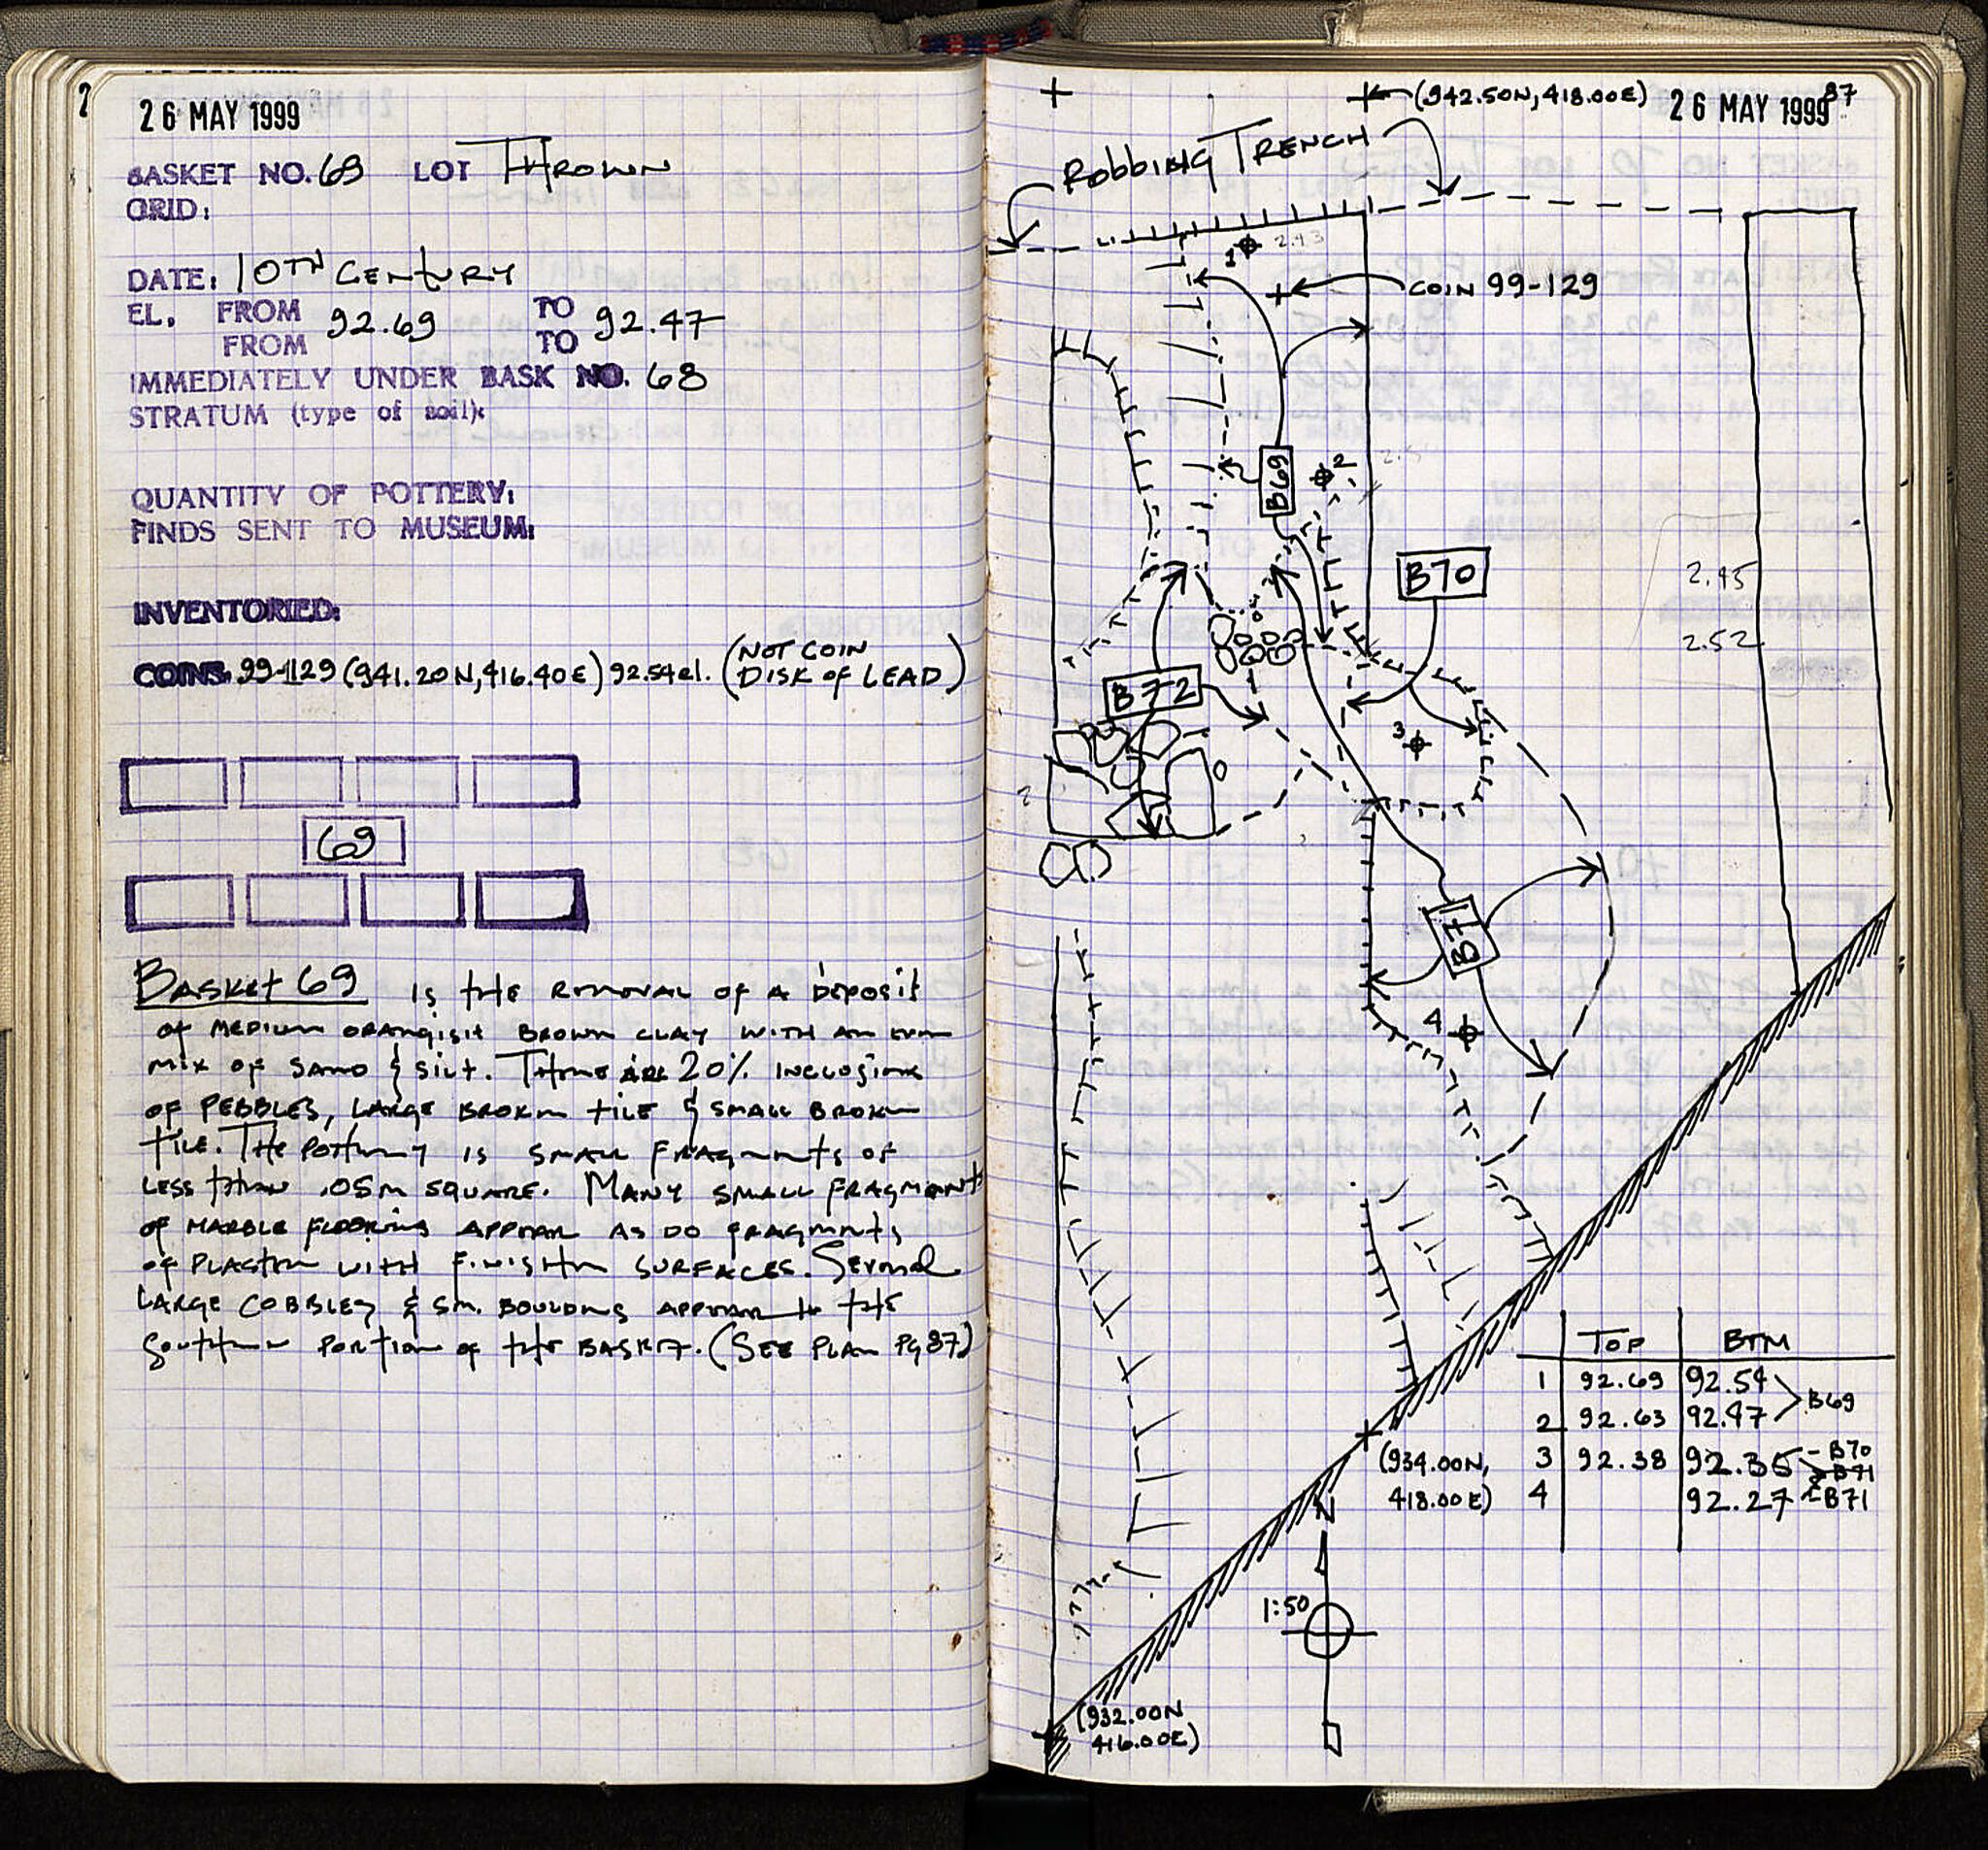 26 MAY 1999
BASKET NO. 69 LOT THROWN
GRID:
DATE: 10TH CENTURY
EL. FROM 92.69 TO 92.47
FROM TO
IMMEDIATELY UNDER BASK NO. 68
STRATUM (type of soil):
QUANTITY OF POTTERY:
FINDS SENT TO MUSEUM:
INVENTORIED:
COINS: 99-129 (941.20N, 416.40E) 92.54 el. (NOT COIN
DISK of LEAD)
69
BASKET 69 IS THE REMOVAL OF A DEPOSIT
OF MEDIUM ORANGISH BROWN CLAY WITH AN EVEN
MIX OF SAND & SILT. THERE ARE 20% INCLUSIONS
OF PEBBLES, LARGE BROKEN TILE & SMALL BROKEN
TILE. THE POTTERY IS SMALL FRAGMENTS OF
LESS THAN .05M SQUARE. MANY SMALL FRAGMENTS
OF MARBLE FLOORING APPEAR AS DO FRAGMENTS
OF PLASTER WITH FINISHED SURFACES. SEVERAL
LARGE COBBLES & SM. BOULDERS APPEAR IN THE
SOUTHERN PORTION OF THE BASKET. (SEE PLAN Pg 87)
87
(942.50N, 418.00E) 26 MAY 1999
ROBBING TRENCH
1 2.43
COIN 99-129
B69
2
B70
2.45
2.52
B72
3
B71
4
TOP BTM
1 92.69 92.54 B69
2 92.63 92.47
3 92.38 92.35 - B70
B71
4 92.27 B71
(934.00N,
418.00E)
N
1:50
(932.00N
416.00E)